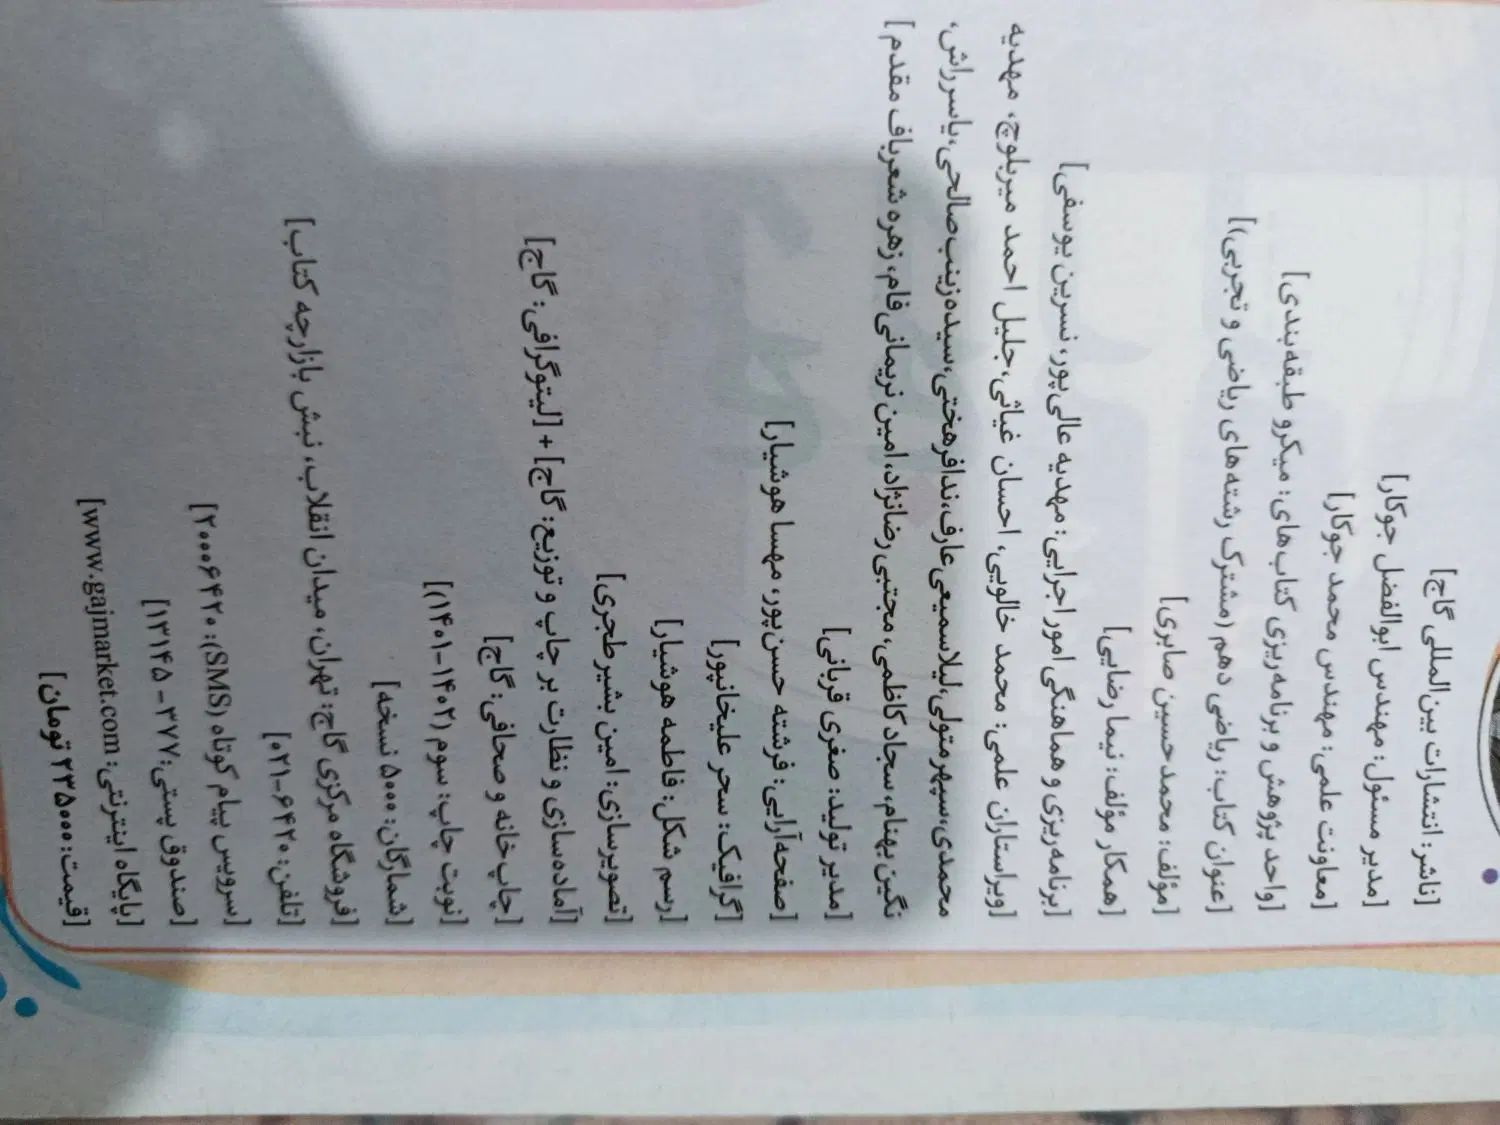 [ناشر: انتشارات بین‌المللی گاج]
[مدیر مسئول: مهندس ابوالفضل جوکار]
[معاونت علمی: مهندس محمد جوکار]
[واحد پژوهش و برنامه‌ریزی کتاب‌های: میکرو طبقه‌بندی]
[عنوان کتاب: ریاضی دهم (مشترک رشته‌های ریاضی و تجربی)]
[مؤلف: محمدحسین صابری]
[همکار مؤلف: نیما رضایی]
[برنامه‌ریزی و هماهنگی امور اجرایی: مهدیه عالی‌پور، نسرین یوسفی]
[ویراستاران علمی: محمد خالویی، احسان غیاثی، جلیل احمد میربلوچ، مهدیه
محمدی، سپهر متولی، لیلا سمیعی عارف، ندا فرهختی، سیده زینب صالحی، یاسر راش،
نگین بهنام، سجاد کاظمی، مجتبی رضانژاد، امین نریمانی فام، زهره شعرباف مقدم]
[مدیر تولید: صغری قربانی]
[صفحه‌آرایی: فرشته حسن‌پور، مهسا هوشیار]
[گرافیک: سحر علیخانپور]
[رسم شکل: فاطمه هوشیار]
[تصویرسازی: امین بشیر طجری]
[آماده‌سازی و نظارت بر چاپ و توزیع: گاج] + [لیتوگرافی: گاج]
[چاپ‌خانه و صحافی: گاج]
[نوبت چاپ: سوم (۱۴۰۲-۱۴۰۱)]
[شمارگان: ۵۰۰۰ نسخه]
[فروشگاه مرکزی گاج: تهران، میدان انقلاب، نبش بازارچه کتاب]
[تلفن: ۶۴۲۰-۰۲۱]
[سرویس پیام کوتاه (SMS): ۲۰۰۰۶۴۲۰]
[صندوق پستی: ۳۷۷ - ۱۳۱۴۵]
[پایگاه اینترنتی: www.gajmarket.com]
[قیمت: ۲۳۵۰۰۰ تومان]